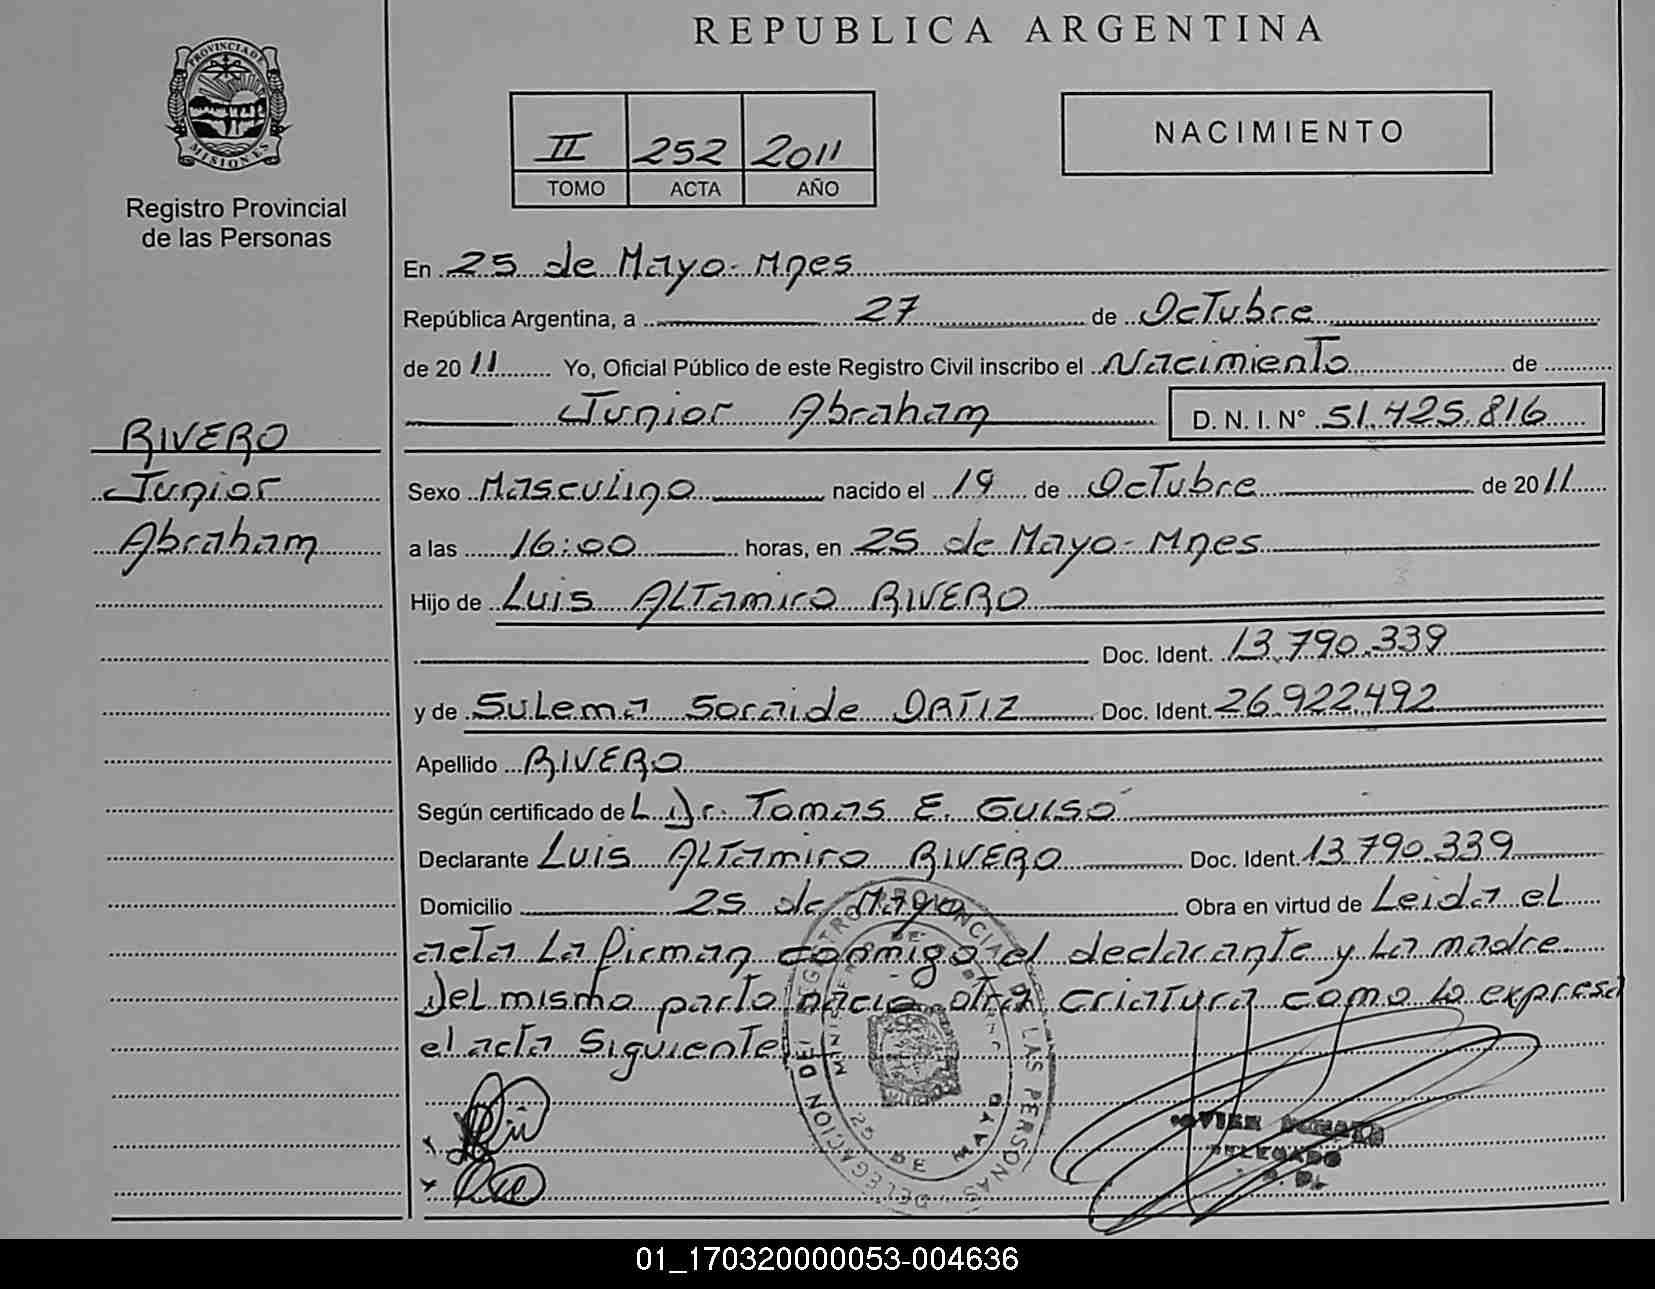 REPUBLICA ARGENTINA
PROVINCIA DE
MISIONES
Registro Provincial
de las Personas
II 252 2011
TOMO ACTA AÑO
NACIMIENTO
En 25 de Mayo-Mnes
República Argentina, a 27 de Octubre
de 2011 Yo, Oficial Público de este Registro Civil inscribo el Nacimiento de
Junior Abraham D. N. I. N° 51.425.816
RIVERO
Junior
Abraham
Sexo Masculino nacido el 19 de Octubre de 2011
a las 16:00 horas, en 25 de Mayo-Mnes
Hijo de Luis Altamiro RIVERO
Doc. Ident. 13.790.339
y de Sulema Soraide ORTIZ Doc. Ident. 26.922.492
Apellido RIVERO
Según certificado de L Dr. Tomas E. Guiso
Declarante Luis Altamiro RIVERO Doc. Ident. 13.790.339
Domicilio 25 de Mayo Obra en virtud de Leida el
acta la firman conmigo el declarante y la madre
Del mismo parto nacio otra criatura como lo expresa
el acta Siguiente
DELEGACION DEL REGISTRO PROVINCIAL DE LAS PERSONAS
25 DE MAYO
DELEGADO
01_170320000053-004636